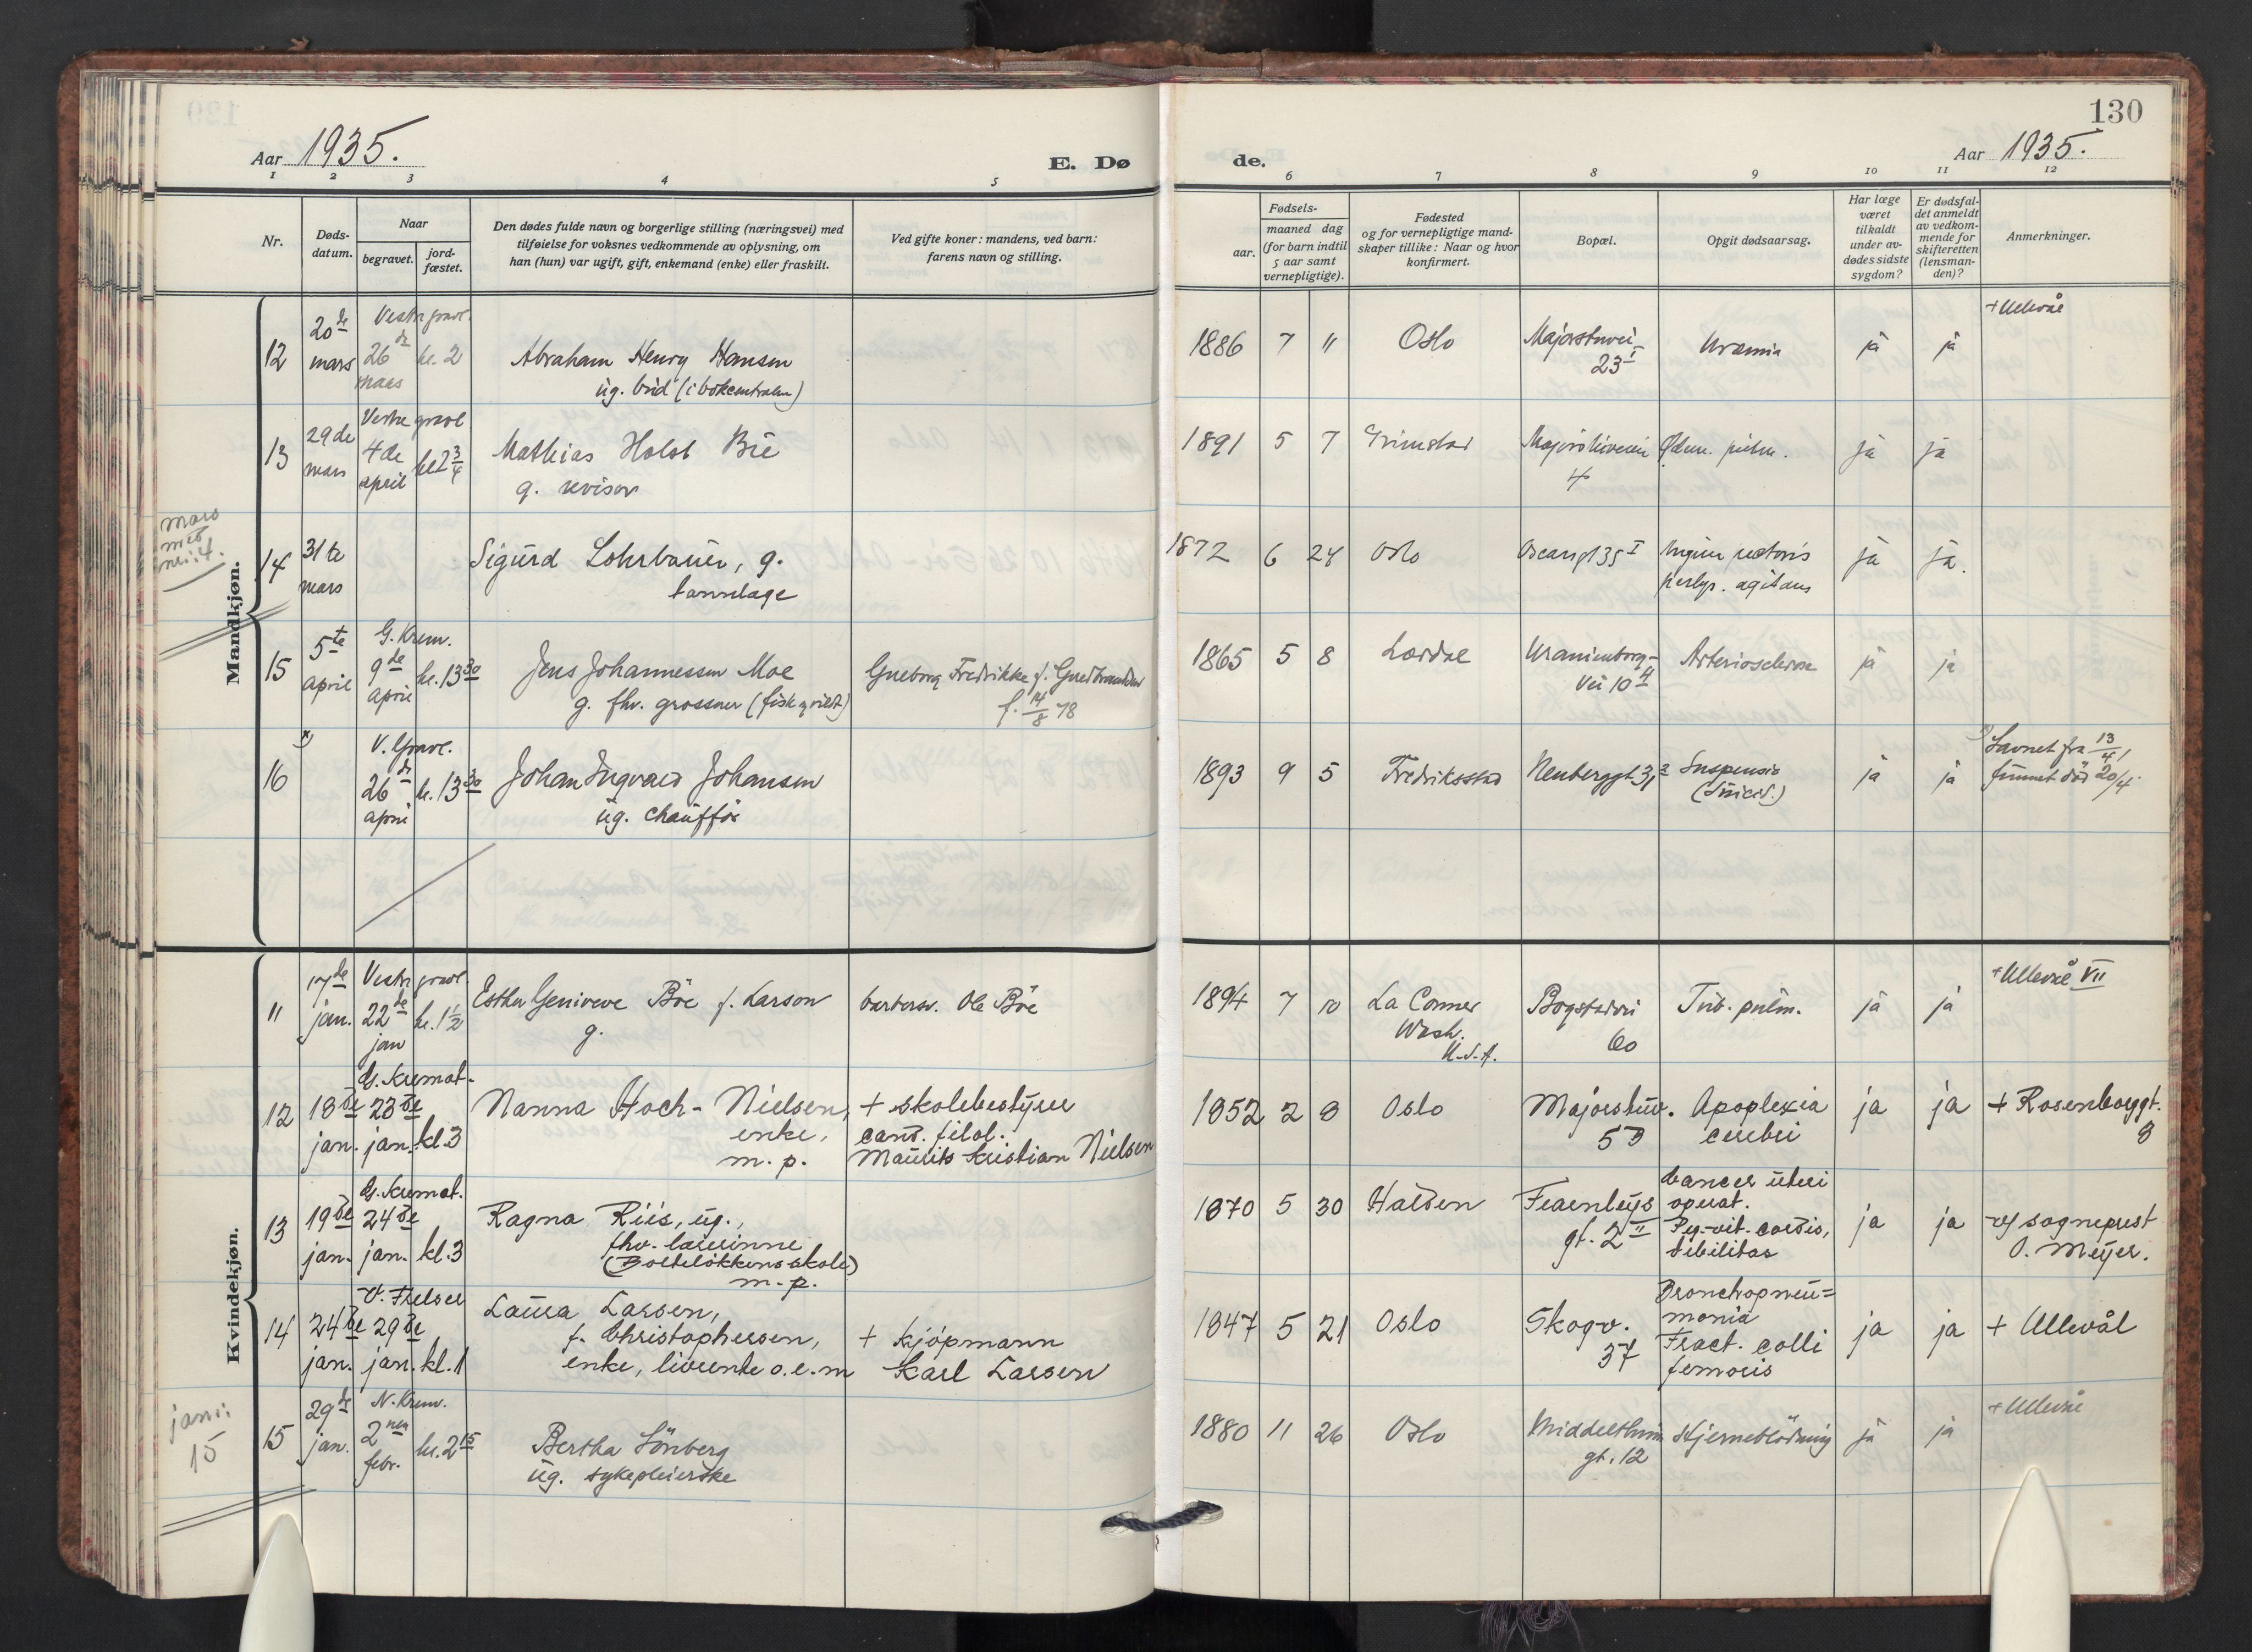 130
Aar 1935.
E. Dø
de.
Aar 1935.
1 2 3 4 5 6 7 8 9 10 11 12
Nr.
Døds-
datum.
Naar
begravet.
jord-
fæstet.
Den dødes fulde navn og borgerlige stilling (næringsvei) med
tilføielse for voksnes vedkommende av oplysning, om
han (hun) var ugift, gift, enkemand (enke) eller fraskilt.
Ved gifte koner: mandens, ved barn:
farens navn og stilling.
Fødsels-
aar.
maaned dag
(for barn indtil
5 aar samt
vernepligtige).
Fødested
og for vernepligtige mand-
skaper tillike: Naar og hvor
konfirmert.
Bopæl.
Opgit dødsaarsag.
Har læge
været
tilkaldt
under av-
dødes sidste
sygdom?
Er dødsfal-
det anmeldt
av vedkom-
mende for
skifteretten
(lensman-
den)?
Anmerkninger.
Mandkjøn.
12
20de
mars
Vestre gravl.
26de
mars
kl. 2
Abraham Henry Hansen
ug. bud (i boksentralen)
1886 7 11 Oslo
Majorstuvei
23 I
Uræmia
ja ja
+ Ullevål
13
29de
mars
Vestre gravl
4de
april
kl 2 3/4
Mathias Holst Bie
g. revisor
1891 5 7 Grimstad
4
pulm.
ja ja
mars
med
nr: 14.
14
31te
mars
Sigurd Lohrbauer, g.
tannlæge
1872 6 24 Oslo
Oscarsgt 35 I
Angina pectoris
agitans
ja ja.
15
5te
april
G. Krem.
9de
april
kl. 13 30
Jens Johannessen Moe
g. fhv. grosserer (fisk og vilt)
Fredrikke f. Gudbrandsen
f. 14/8 78
1865 5 8 Lærdal
Uranienborg-
vei 10 II
Arteriosclerose
ja ja
16
x)
V. Gravl.
26de
april
kl. 13 30
Johan Ingvald Johansen
ug. chauffør
1893 9 5 Fredriksstad
Neuberggt. 31 2
Suspensio
(Suicid.)
ja ja
x) Savnet fra 13/4,
funnet død 20/4.
Kvindekjøn.
11
17de
jan.
Vestre gravl.
22de
jan
kl. 1 1/2
Esther Geniveve Böe f. Larson
g.
barbersv. Ole Böe
1894 7 10
La Conner
Wash.
U.S.A.
Bogstadvei
60
Tub. pulm.
ja ja
+ Ullevål VII
12
18de
jan.
G. Kremat.
23de
jan.
kl 3
Nanna Hoch-Nielsen,
enke,
m. p.
+ skolebestyrer
cand. filol.
Maurits Kristian Nielsen
1852 2 8 Oslo
Majorstuv.
53
Apoplexia
cerebri
ja ja
+ Rosenborggt.
8
13
19de
jan.
G. Kremat.
24de
jan.
kl. 3
Ragna Riis, ug.,
fhv. lærerinne
(Bolteløkkens skole)
m. p.
1870 5 30 Halden
Fearnleys
gt. 2 II
Cancer uteri
operat.
vit. cordis,
debilitas
ja ja
v/ sogneprest
O. Meyer.
14
24de
jan.
V. Frelser
29de
jan.
kl. 1
Laura Larsen,
f. Christophersen,
enke, livrente o.e.m
+ kjøpmann
Karl Larsen
1847 5 21 Oslo
Skogv.
37
Bronchopneu=
monia
Fract. colli
femoris
ja ja
+ Ullevål
jan:
15
15
29de
jan.
N. Krem.
2nen
febr.
kl. 2 15
Bertha Sönberg
ug. sykepleierske
1880 11 26 Oslo
Middelthuns
gt. 12
Hjerneblödning
ja ja
+ Ullevål